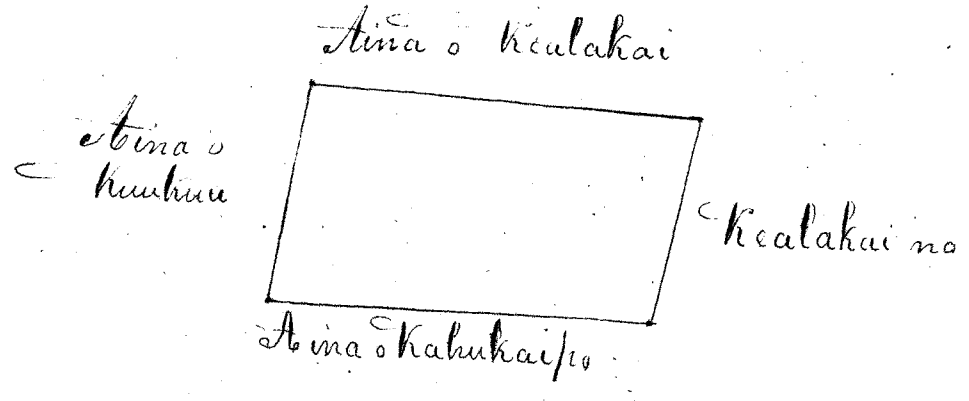 Aina o Kealakai
Aina o
Kuukuu
Kealakai no
Aina o Kahukaipo